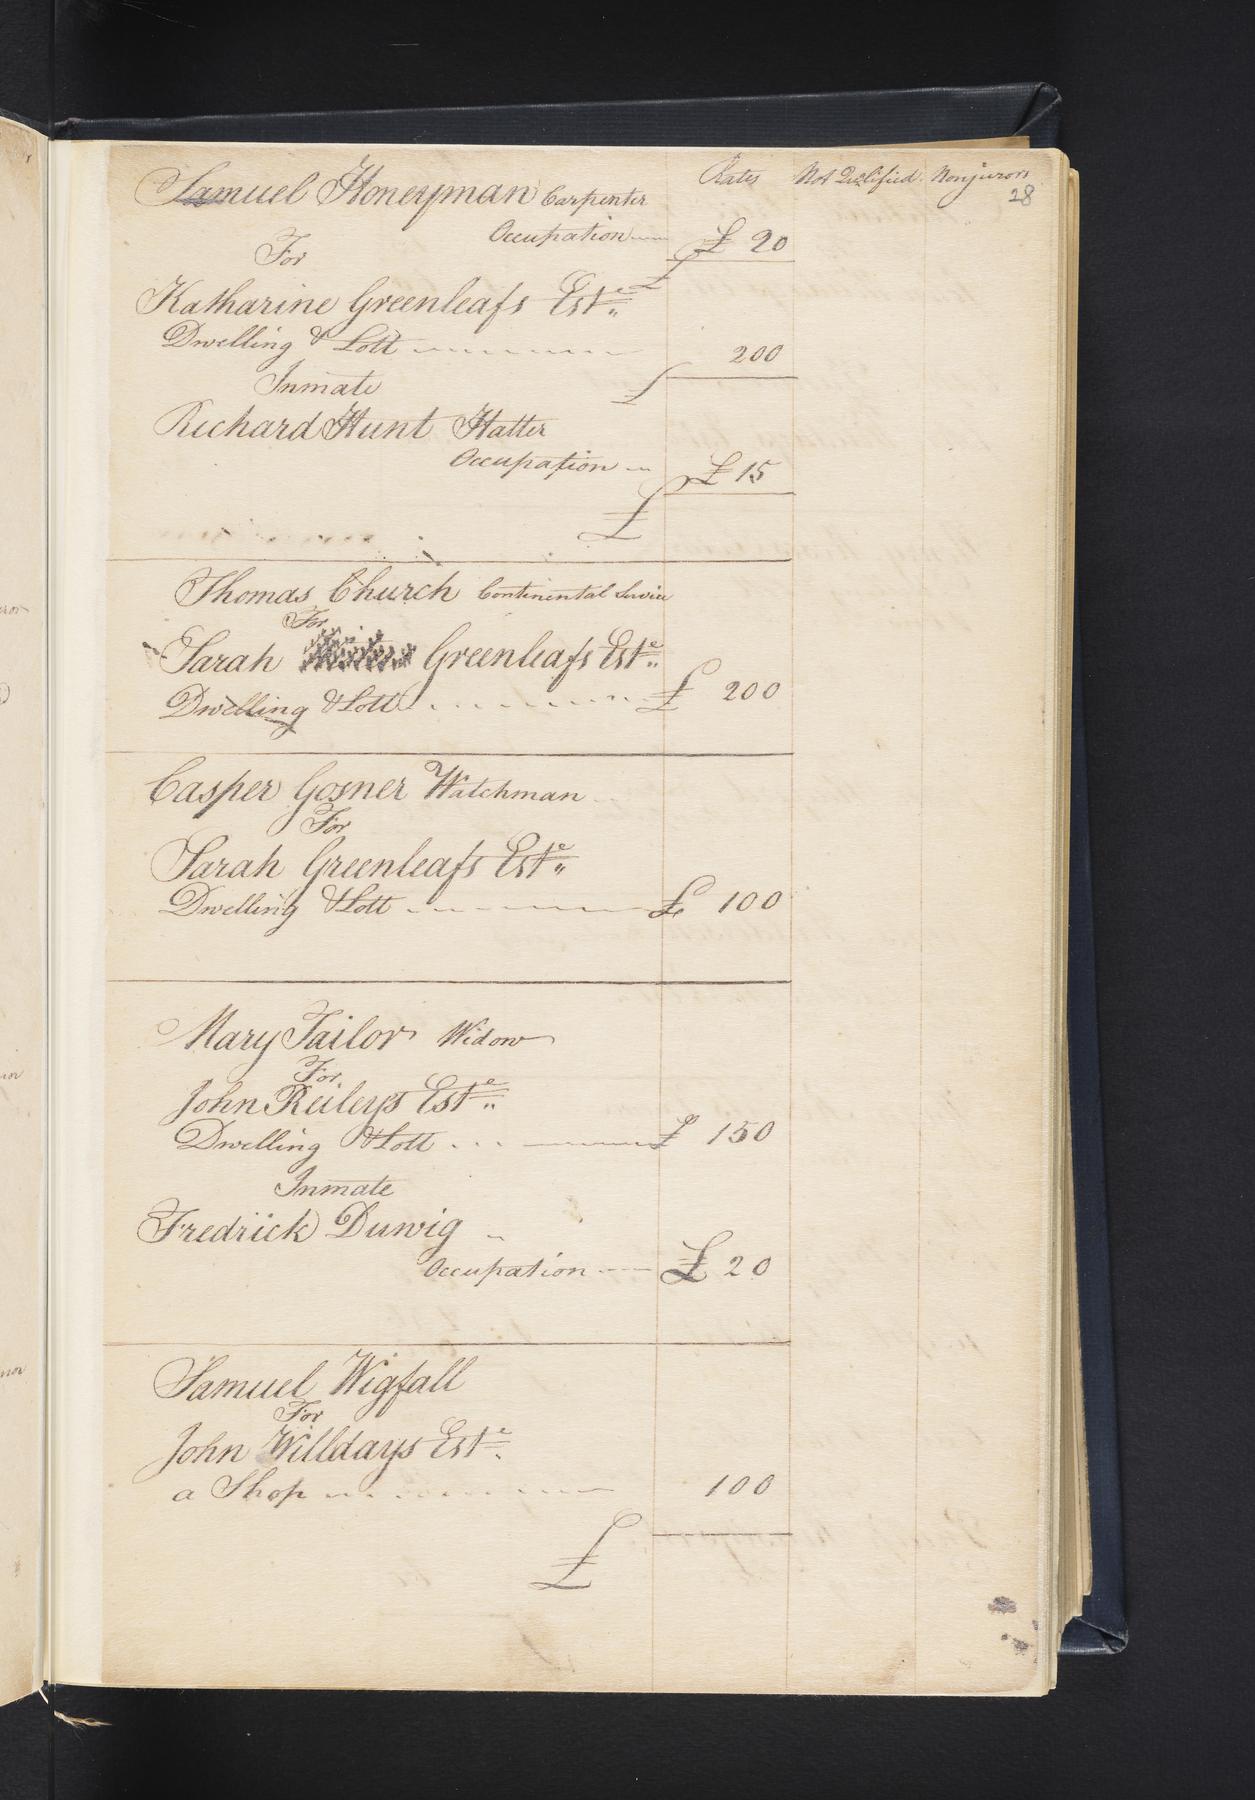 Rates Not Qualified Nonjurors
28
Samuel Honeyman Carpenter
Occupation £ 20
For £
Katharine Greenleafs Est.e
Dwelling & Lott 200
Inmate £
Richard Hunt Hatter
Occupation £ 15
£
Thomas Church Continental Service
For
Sarah Greenleafs Est.e
Dwelling & Lott £ 200
Casper Gosner Watchman
For
Sarah Greenleafs Est.e
Dwelling & Lott £ 100
Mary Tailor Widow
For
John Reileys Est.e
Dwelling & Lott £ 150
Inmate
Fredrick Duwig
Occupation £ 20
Samuel Wigfall
For
John Willdays Est.e
a Shop 100
£